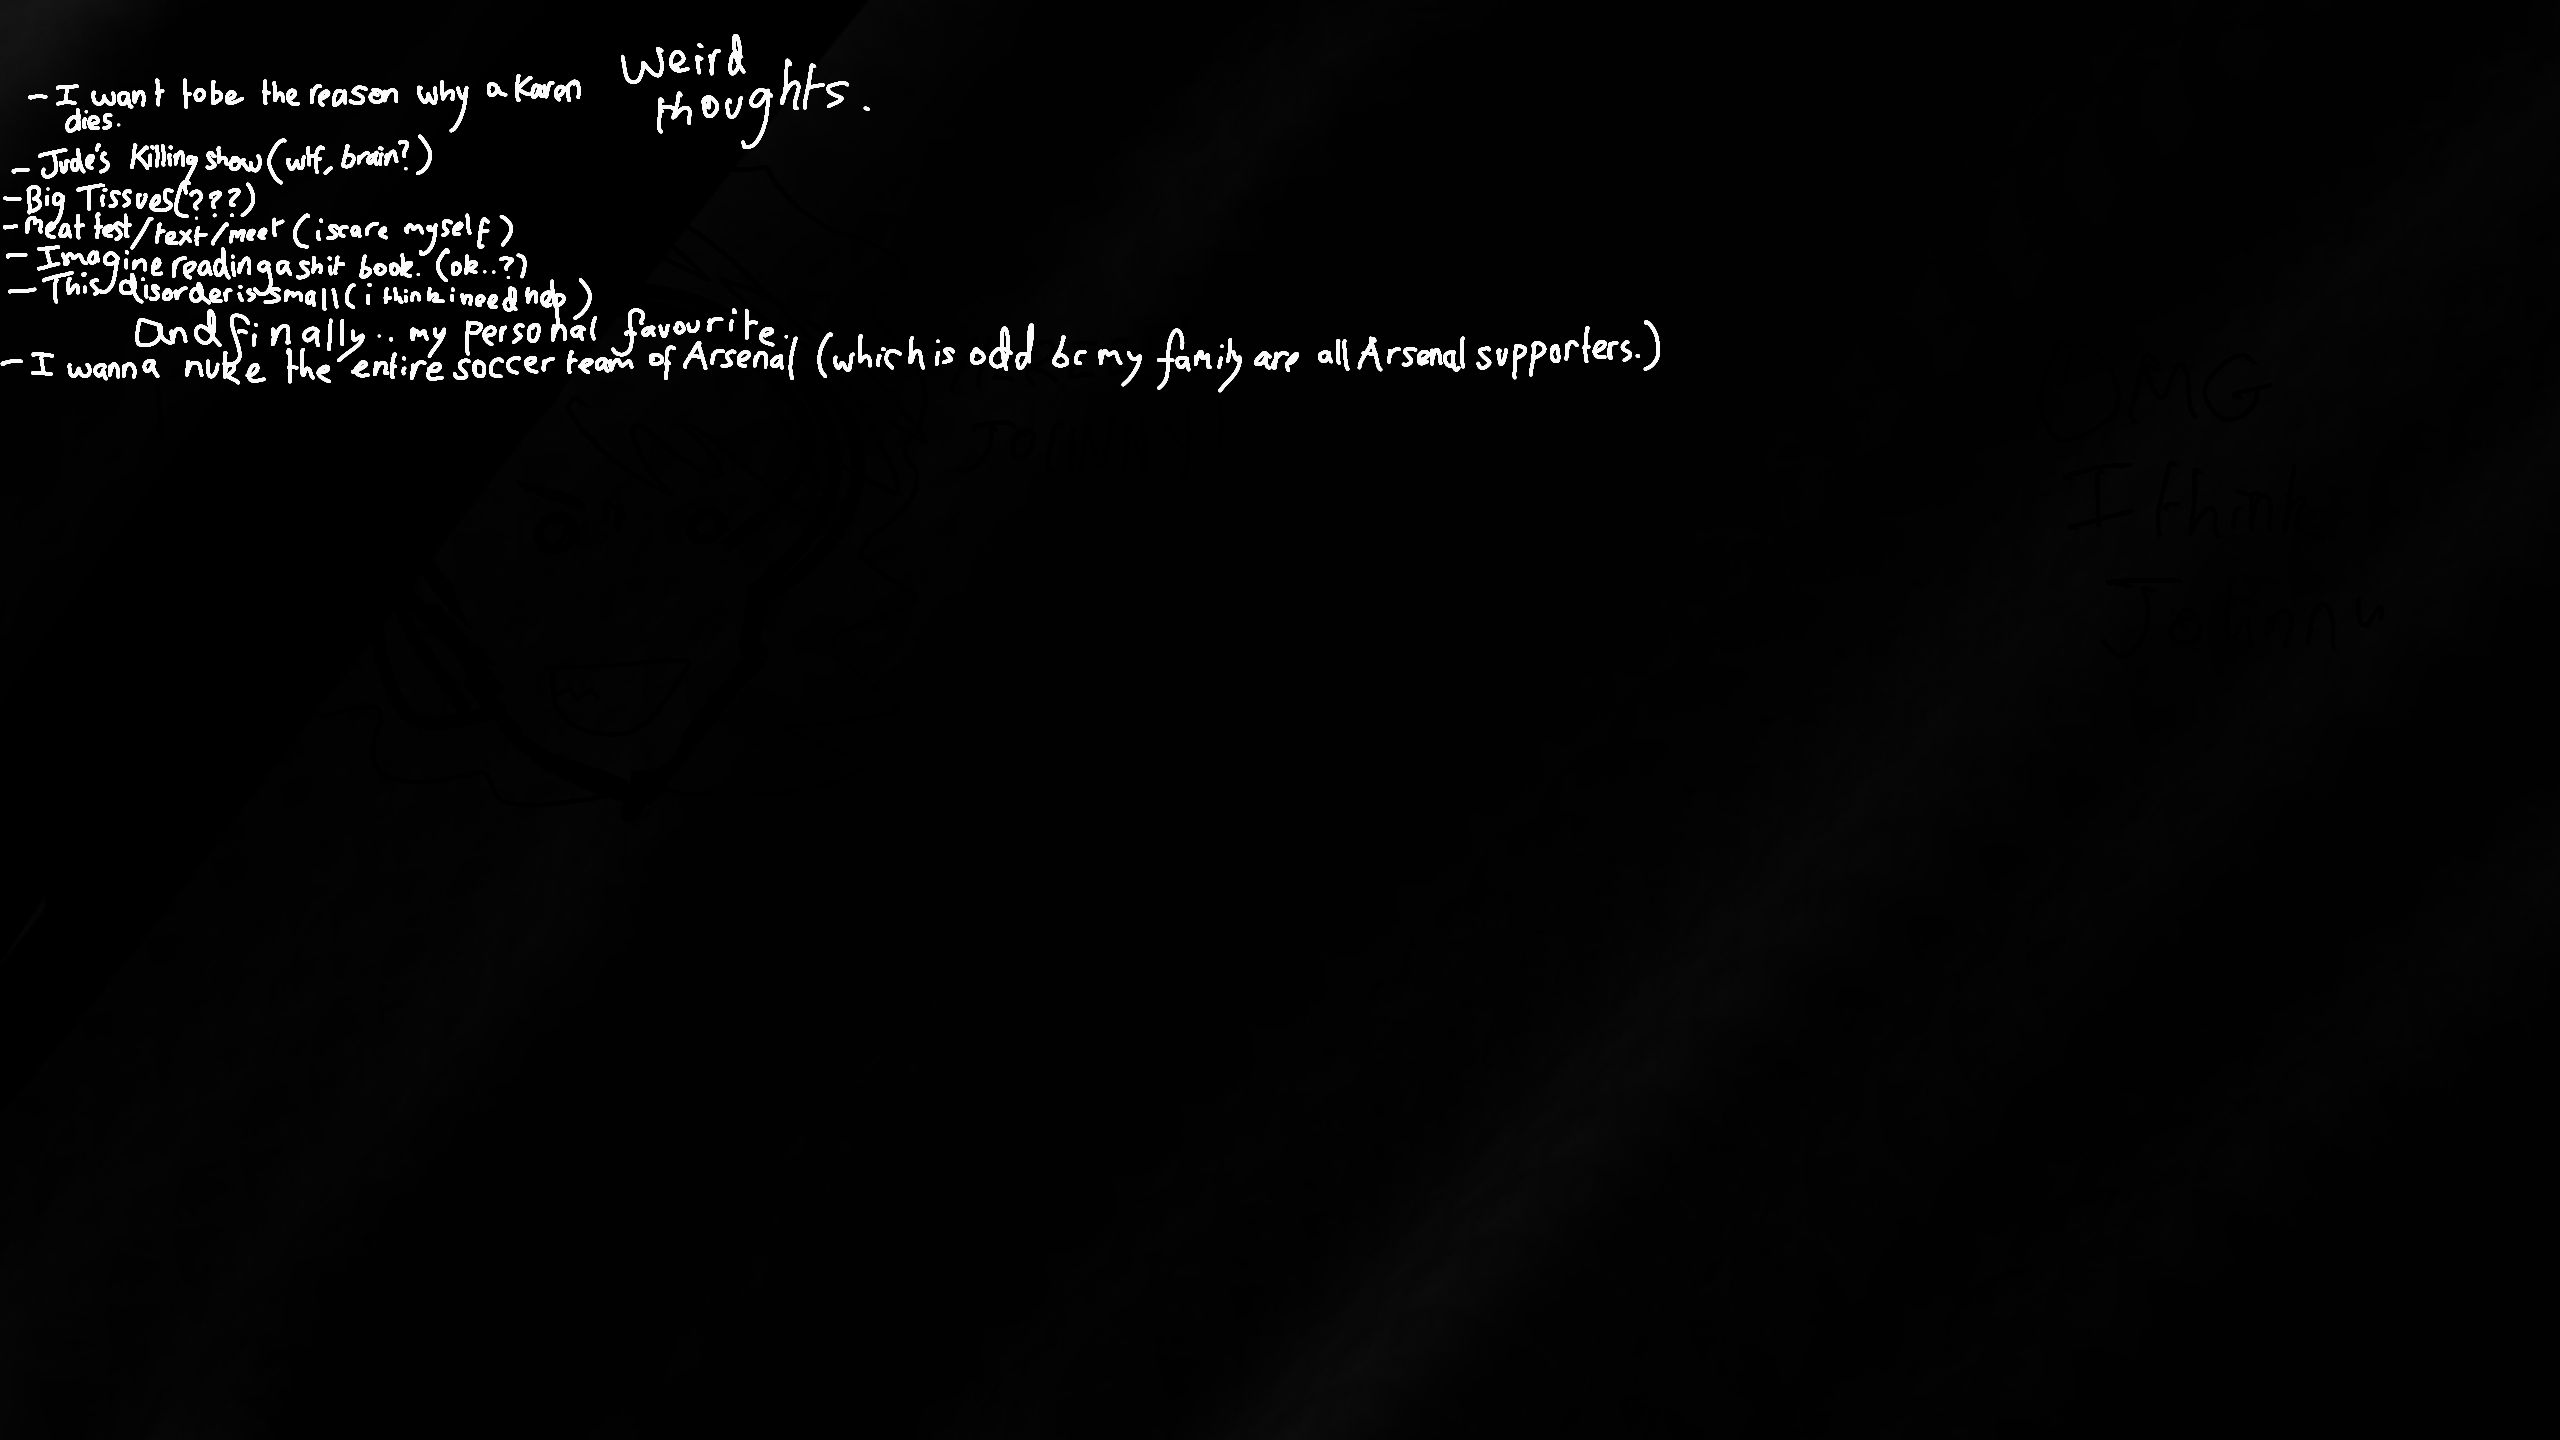 Weird
thoughts.
- I want to be the reason why a Karen
dies.
- Jude's Killing show (wtf, brain?)
- Big Tissues (???)
- Meat test/text/meet (i scare myself)
- Imagine reading a shit book. (ok..?)
- This disorder is small (i think i need help)
And finally.. my personal favourite..
- I wanna nuke the entire soccer team of Arsenal (which is odd bc my family are all Arsenal supporters.)
JOHNNY
OMG
I think
Johnny